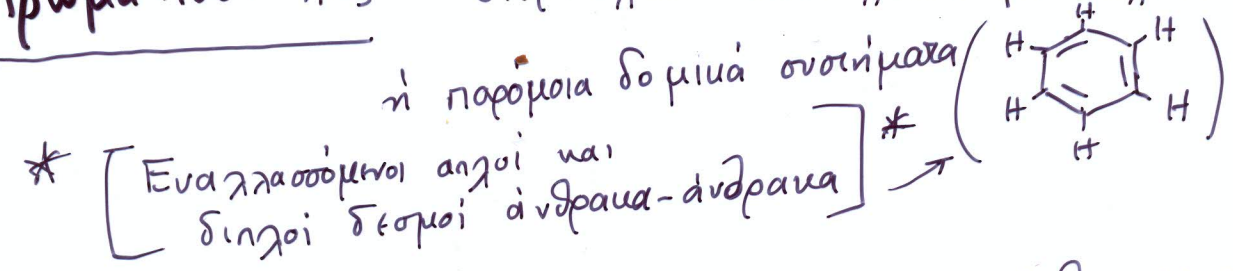 ή παρόμοια δομικά συστήματα
* [Εναλλασσόμενοι απλοί και
διπλοί δεσμοί άνθρακα-άνθρακα]*
H
H H
H H
H